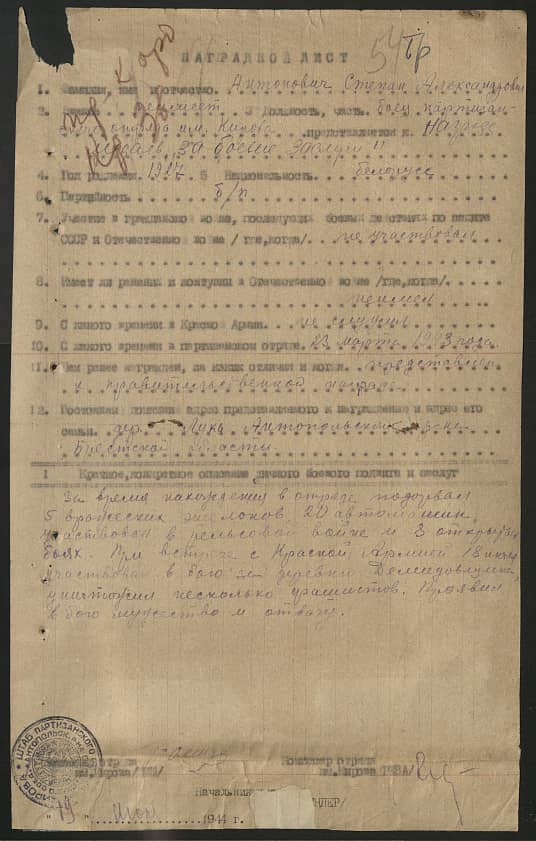 54 Тр
НАГРАДНОЙ ЛИСТ
1. Фамилия, имя и отчество. Антонович Степан Александрович
2. 3 Должность, часть. боец партизан-
им. Кирова представляется к.
медаль "За боевые заслуги"
4. Год рождения. 1927 5 Национальность. белорус
6. Партийность б/п
7. Участие в гражданской войне, последующих боевых действиях по защите
СССР и Отечественной войне /где,когда/. не участвовал
8. Имеет ли ранения и контузии в Отечественной войне /где,когда/.
не имел
9. С какого времени в Красной Армии. не служил
10. С какого времени в партизанском отряде. 23 марта 1943 года
11. Чем ранее награжден, за какие отличия и когда. представлен
к правительственной награде
12. Постоянный домашний адрес представляемого к награждению и адрес его
семьи. дер. Антопольского р-на
Брестской области.
1 Краткое,конкретное описание личного боевого подвига и заслуг
За время нахождения в отряде подорвал
5 вражеских эшелонов 20 автомашин
участвовал в рельсовой войне и 3 открытых
боях. При встрече с Красной Армией
участвовал в бою за деревни
уничтожил несколько фашистов. Проявил
в бою мужество и отвагу.
ШТАБ ПАРТИЗАНСКОГО
отряда Командир отряда
им.Кирова им.Кирова
Начальник
" 19 " 1944 г.